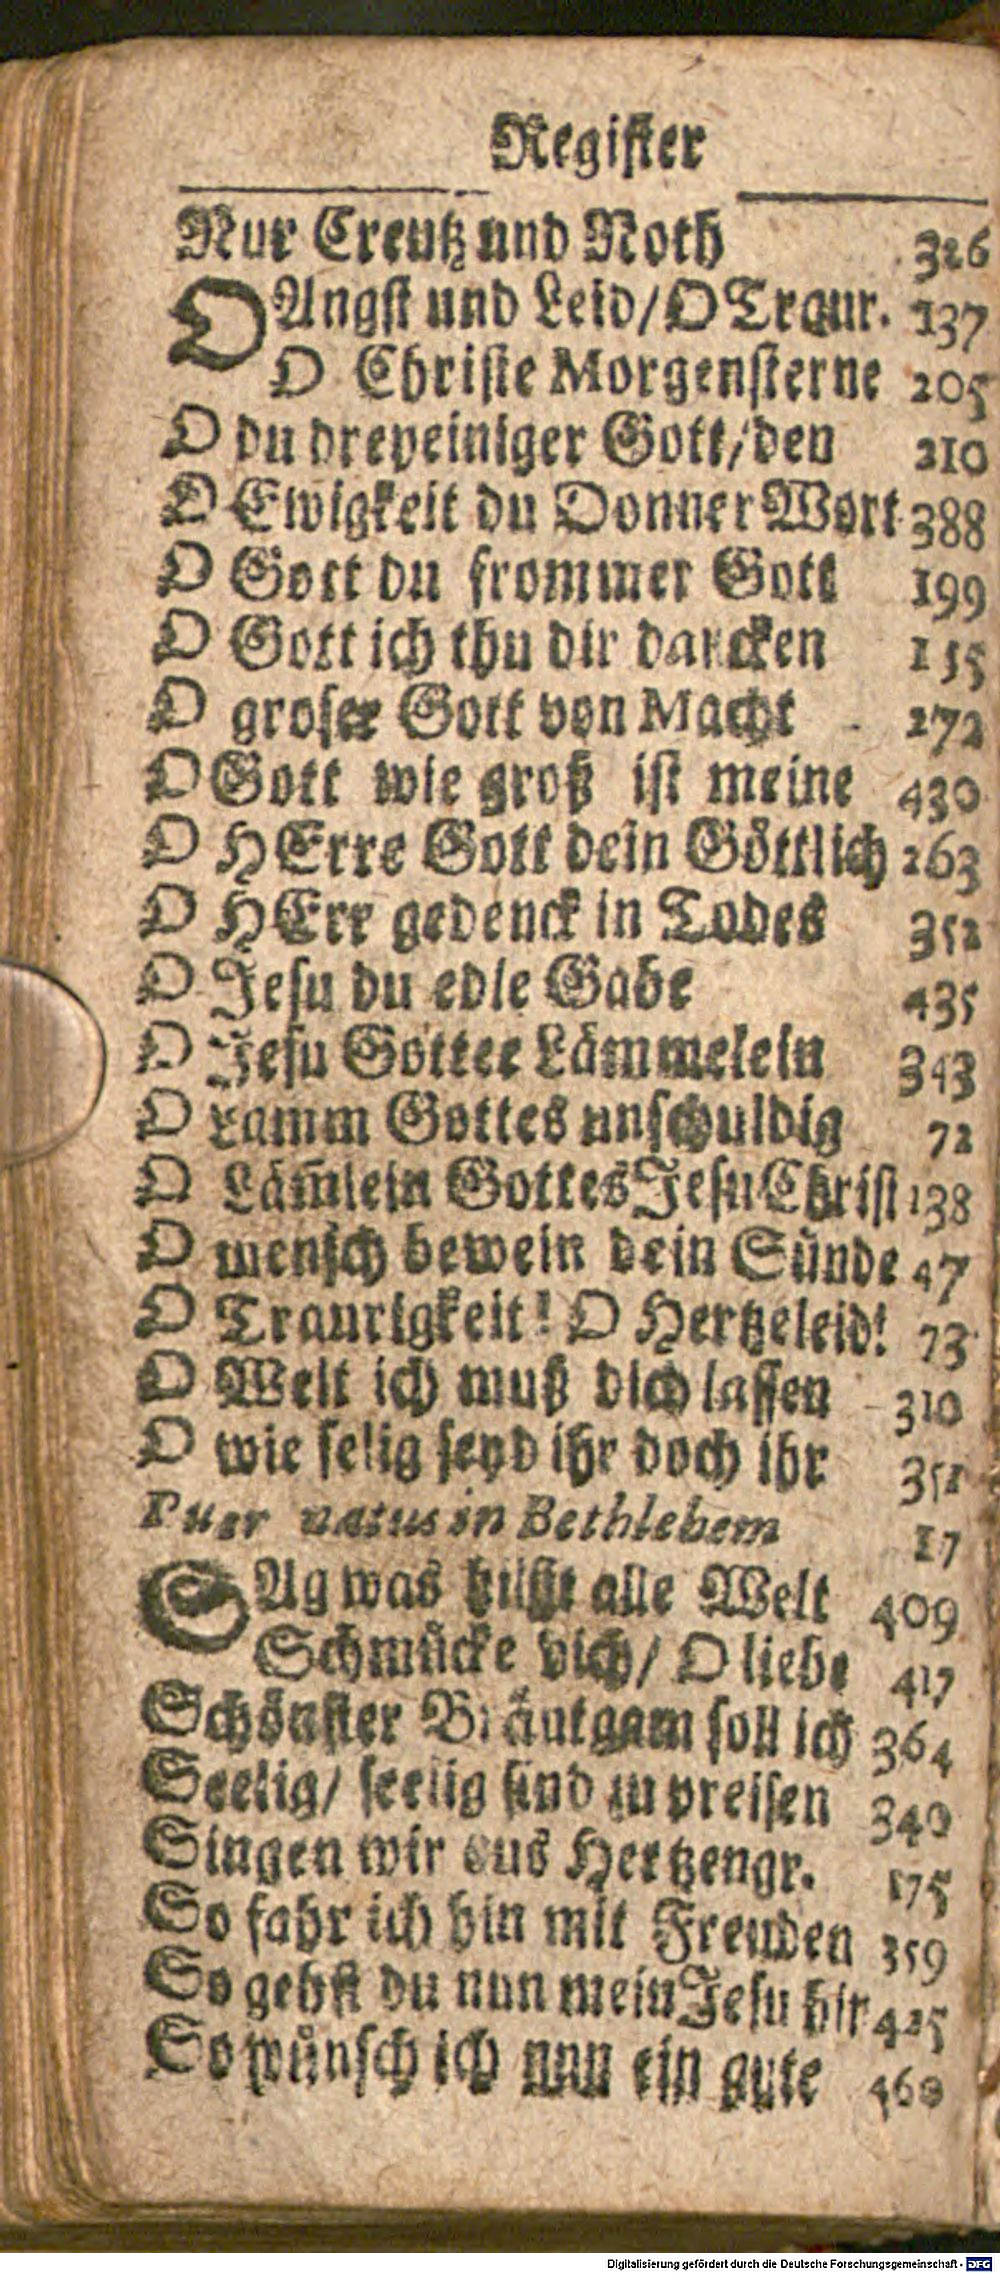 Register
Nur Creutz und Noth 326
O Angst und Leid/ O Traur. 137
O Christe Morgensterne 205
O du dreyeiniger Gott/ den 210
O Ewigkeit du Donner Wort 388
O Gott du frommer Gott 199
O Gott ich thu dir dancken 155
O groser Gott von Macht 272
O Gott wie groß ist meine 430
O HErre Gott dein Göttlich 263
O HErr gedenck in Todes 352
O Jesu du edle Gabe 435
O Jesu Gottes Lämmelein 343
O Lamm Gottes unschuldig 72
O Läm̃lein Gottes Jesu Christ 138
O mensch bewein dein Sünde 47
O Traurigkeit! O Hertzeleid! 73
O Welt ich muß dich lassen 310
O wie selig seyd ihr doch ihr 351
Puer natus in Bethlehem 17
SAg was hilfft alle Welt 409
Schmücke dich/ O liebe 417
Schönster Bräutgam soll ich 364
Seelig/ seelig sind zu preisen 340
Singen wir aus Hertzengr. 175
So fahr ich hin mit Freuden 359
So gehst du nun mein Jesu hin 425
So wünsch ich nun ein gute 460
Digitalisierung gefördert durch die Deutsche Forschungsgemeinschaft - DFG